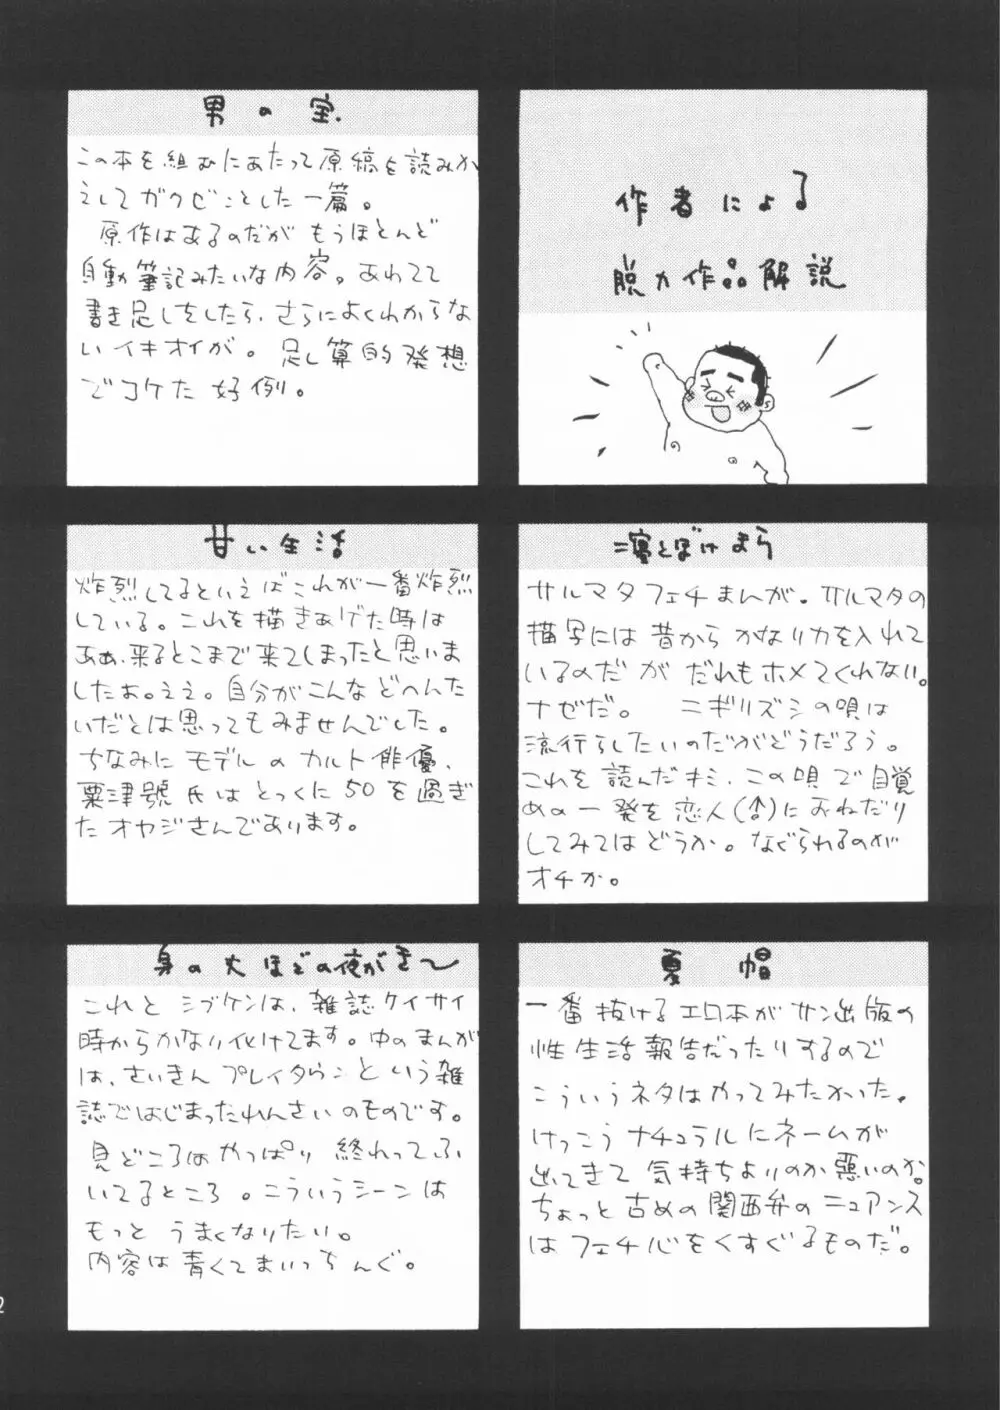 作者による
脱力作品解説
男の宝
この本を組むにあたって原稿を読みか
えしてガクゼンとした一篇。
原作はあるのだが もうほとんど
自動筆記みたいな内容。あわてて
書き足しをしたら、さらによくわからな
いイキオイが。足し算的発想
でコケた好例。
サルマタフェチまんが。サルマタの
描写には昔から かなり力を入れて
いるのだが だれもホメてくれない。
ナゼだ。 ニギリズシの唄は
流行らしたいのだがどうだろう。
これを読んだキミ、この唄で目覚
めの一発を恋人(♂)におねだり
してみてはどうか。なぐられるのが
オチか。
甘い生活
炸烈してるといえばこれが一番炸烈
している。これを描きあげた時は
あぁ、来るとこまで来てしまったと思いま
したぉ。ええ。自分がこんなどへんた
いだとは思ってもみませんでした。
ちなみにモデルのカルト俳優、
粟津號氏はとっくに50を過ぎ
たオヤジさんであります。
夏帽
一番抜けるエロ本がサン出版の
性生活報告だったりするので
こういうネタはやってみたかった。
けっこうナチュラルにネームが
出てきて 気持ちよいのか悪いのか。
ちょっと古めの関西弁のニュアンス
はフェチ心をくすぐるものだ。
身の丈ほどの夜がき〜
これと シブケンは、雑誌ケイサイ
時からかなり化けてます。中のまんが
は、さいきん プレイタウンという雑
誌ではじまったれんさいのものです。
見どころはやっぱり 終わってふ
いてるところ。こういうシーンは
もっと うまくなりたい。
内容は青くてまいっちんぐ。
2